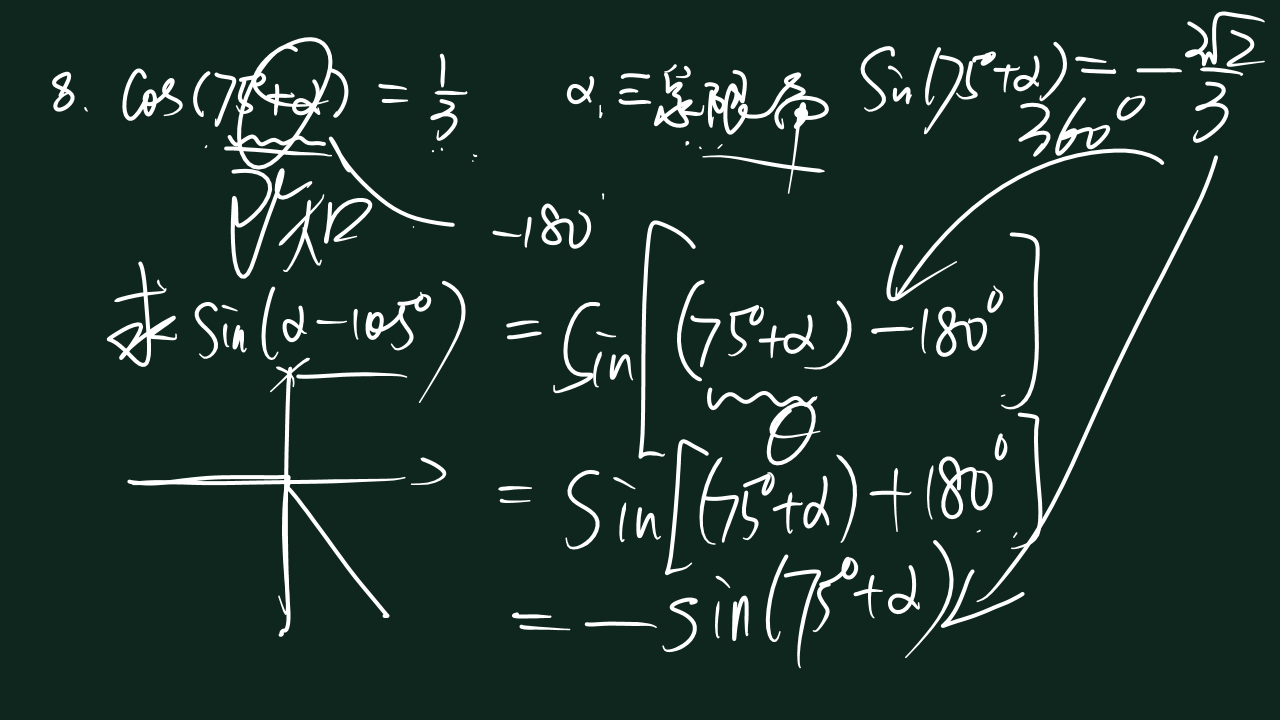 8. cos(75°+α) = 1/3 α 三象限角 sin(75°+α) = -2√2/3
360°
-180°
求 sin(α-105°) = sin[(75°+α)-180°]
θ
= sin[(75°+α)+180°]
= -sin(75°+α)